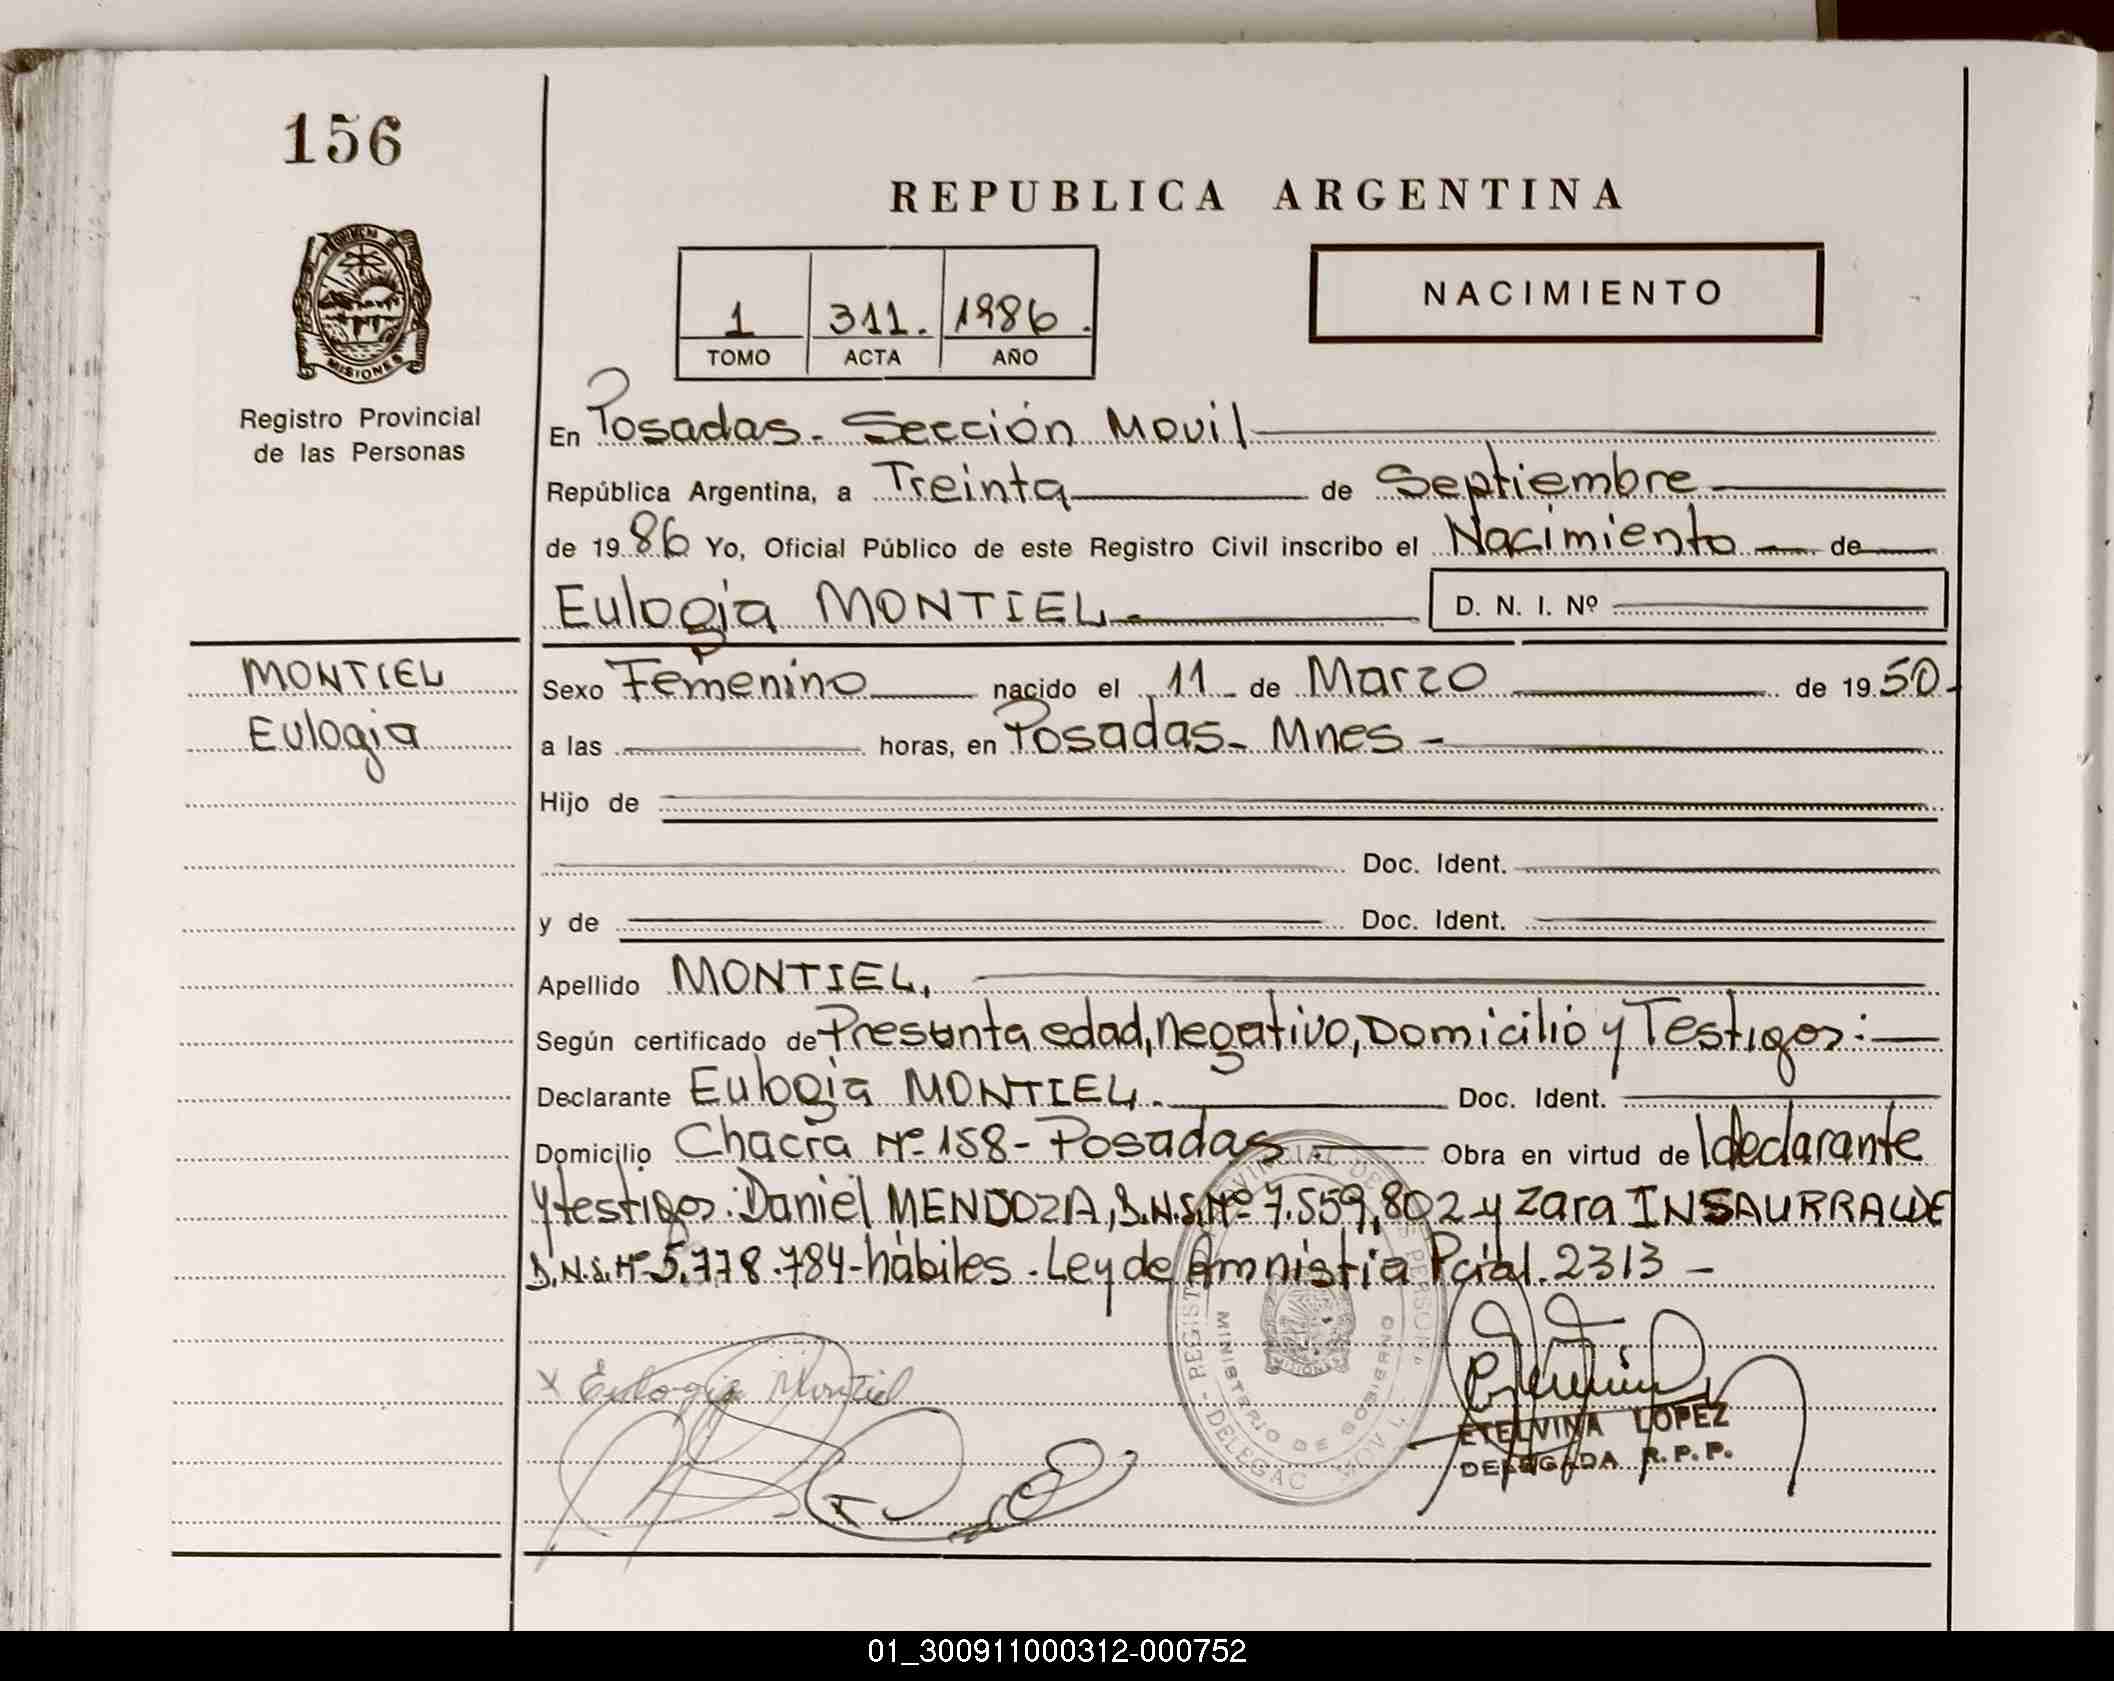 156
REPUBLICA ARGENTINA
1 311. 1986.
TOMO ACTA AÑO
NACIMIENTO
MISIONES
Registro Provincial
de las Personas
En Posadas. Sección Movil
República Argentina, a Treinta de Septiembre
de 1986 Yo, Oficial Público de este Registro Civil inscribo el Nacimiento de
Eulogia MONTIEL.
D. N. I. Nº
MONTIEL
Eulogia
Sexo Femenino nacido el 11 de Marzo de 1950.
a las horas, en Posadas. Mnes -
Hijo de
Doc. Ident.
y de Doc. Ident.
Apellido MONTIEL,
Según certificado de Presunta edad, negativo, Domicilio y Testigos:
Declarante Eulogia MONTIEL. Doc. Ident.
Domicilio Chacra Nº 158 - Posadas. Obra en virtud de ldeclarante
y testigos: Daniel MENDOZA, D.N.I. Nº 7.559,802 y Zara INSAURRALDE
D.N.I. Nº 5.778.784 - hábiles. Ley de Amnistia Pcial. 2313 -
x Eulogia Montiel
MINISTERIO DE GOBIERNO
MISIONES
ETELVINA LOPEZ
DELEGADA R.P.P.
01_300911000312-000752